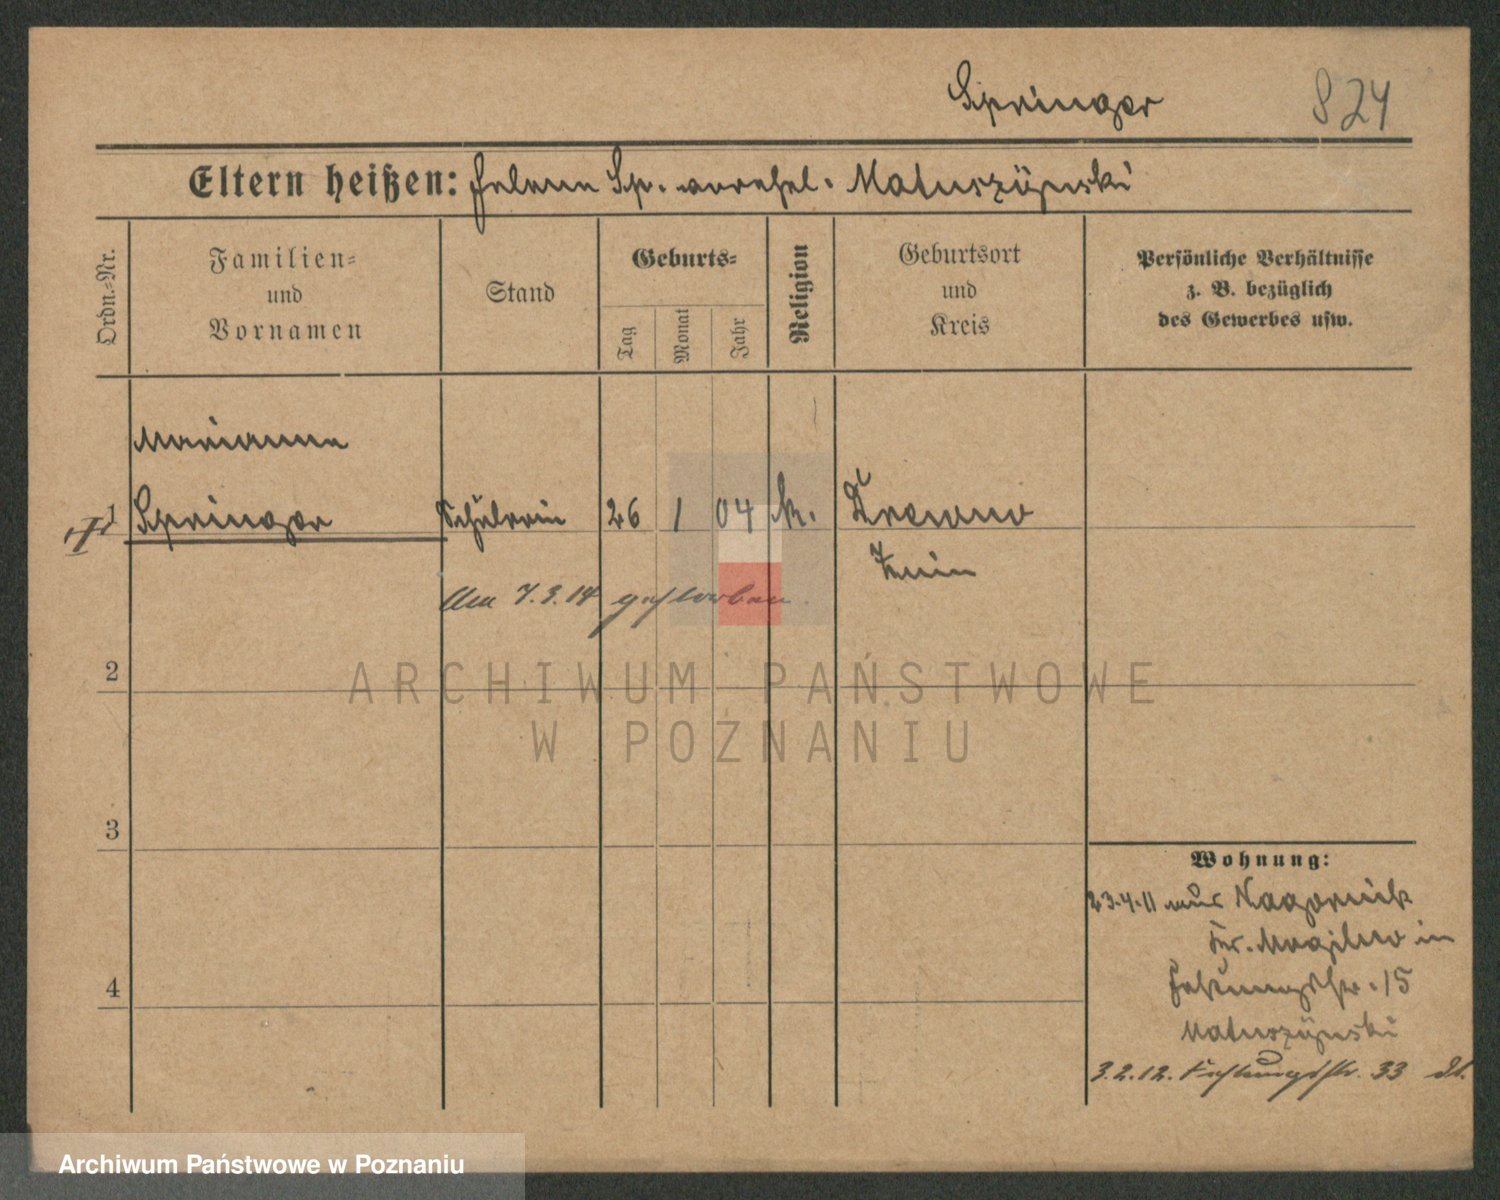 Springer 824
Eltern heißen: Helene Sp. verehel. Matuszÿnski
Ordn.-Nr.
Familien-
und
Vornamen
Stand
Geburts-
Tag
Monat
Jahr
Religion
Geburtsort
und
Kreis
Persönliche Verhältnisse
z. B. bezüglich
des Gewerbes usw.
Marianna
1 Springer Schülerin 26 1 04 k.
Znin
Am 7.3.14 gestorben.
2
ARCHIWUM PAŃSTWOWE
W POZNANIU
3
4
Wohnung:
23.4.11 aus
Kr. Mogilno in
Festungsstr. 15
Matuszÿnski
3.2.12. Festungsstr. 33
Archiwum Państwowe w Poznaniu